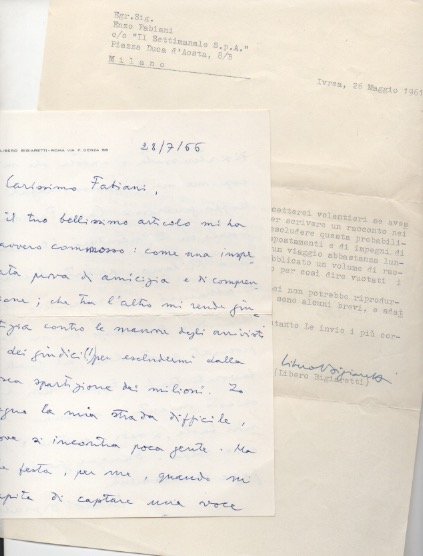 Egr.Sig.
Enzo Fabiani
c/o "Il Settimanale S.p.A."
Piazza Duca d'Aosta, 8/B
Milano
Ivrea, 26 Maggio 1961
LIBERO BIGIARETTI - ROMA VIA F.
28/7/66
Carissimo Fabiani,
il tuo bellissimo articolo mi ha
avvero commosso: come una inspe
ata prova di amicizia e di compren
ione; che tra l'altro mi rende giu
tizia contro le manovre degli arrivisti
dei giudici(!) per escludermi dalla
sca spartizione dei milioni. Io
la mia strada difficile,
ove si incontra poca gente. Ma
festa, per me, quando mi
apita di captare una voce
cetterei volentieri se aves
er scrivere un racconto nei
escludere questa probabili-
spostamenti e di impegni di
un viaggio abbastanza lun-
ubblicato un volume di rac-
o per così dire vuotati i
ei non potrebbe riprodur-
sono alcuni brevi, e adat
tanto Le invio i più cor-
Libero Bigiaretti
(Libero Bigiaretti)